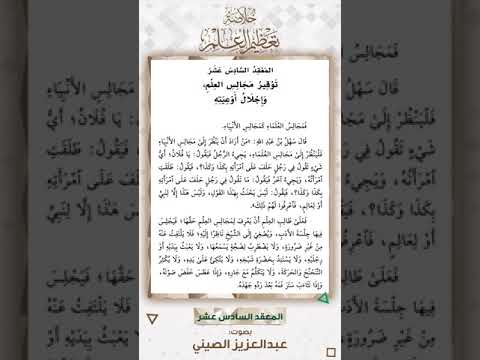 خلاصة
تعظيم العلم
المَعْقِدُ السَّادِسَ عَشَرَ
تَوْقِيرُ مَجَالِسِ العِلْمِ،
وَإِجْلَالُ أَوْعِيَتِهِ
فَمَجَالِسُ العُلَمَاءِ كَمَجَالِسِ الأَنْبِيَاءِ.
قَالَ سَهْلُ بْنُ عَبْدِ اللهِ: «مَنْ أَرَادَ أَنْ يَنْظُرَ إِلَىٰ مَجَالِسِ الأَنْبِيَاءِ
فَلْيَنْظُرْ إِلَىٰ مَجَالِسِ العُلَمَاءِ، يَجِيءُ الرَّجُلُ فَيَقُولُ: يَا فُلَانُ؛ أَيُّ
شَيْءٍ تَقُولُ فِي رَجُلٍ حَلَفَ عَلَىٰ ٱمْرَأَتِهِ بِكَذَا وَكَذَا؟، فَيَقُولُ: طَلَقَتِ
ٱمْرَأَتُهُ، وَيَجِيءُ آخَرُ فَيَقُولُ: مَا تَقُولُ فِي رَجُلٍ حَلَفَ عَلَىٰ ٱمْرَأَتِهِ
بِكَذَا وَكَذَا؟، فَيَقُولُ: لَيْسَ يَحْنَثُ بِهَٰذَا القَوْلِ، وَلَيْسَ هَٰذَا إِلَّا لِنَبِيٍّ
أَوْ لِعَالِمٍ، فَٱعْرِفُوا لَهُمْ ذَلِكَ».
فَعَلَىٰ طَالِبِ العِلْمِ أَنْ يَعْرِفَ لِمَجَالِسِ العِلْمِ حَقَّهَا؛ فَيَجْلِسَ
فِيهَا جِلْسَةَ الأَدَبِ، وَيُصْغِيَ إِلَى الشَّيْخِ نَاظِرًا إِلَيْهِ؛ فَلَا يَلْتَفِتُ عَنْهُ
مِنْ غَيْرِ ضَرُورَةٍ، وَلَا يَضْطَرِبُ لِضَجَّةٍ يَسْمَعُهَا، وَلَا يَعْبَثُ بِيَدَيْهِ أَوْ
رِجْلَيْهِ، وَلَا يَسْتَنِدُ بِحَضْرَةِ شَيْخِهِ، وَلَا يَتَّكِئُ عَلَىٰ يَدِهِ، وَلَا يُكْثِرُ
التَّنَحْنُحَ وَالحَرَكَةَ، وَلَا يَتَكَلَّمُ مَعَ جَارِهِ، وَإِذَا عَطَسَ خَفَضَ صَوْتَهُ،
وَإِذَا تَثَاءَبَ سَتَرَ فَمَهُ بَعْدَ رَدِّهِ جَهْدَهُ.
المعقد السادس عشر
بصوت:
عبدالعزيز الصيني